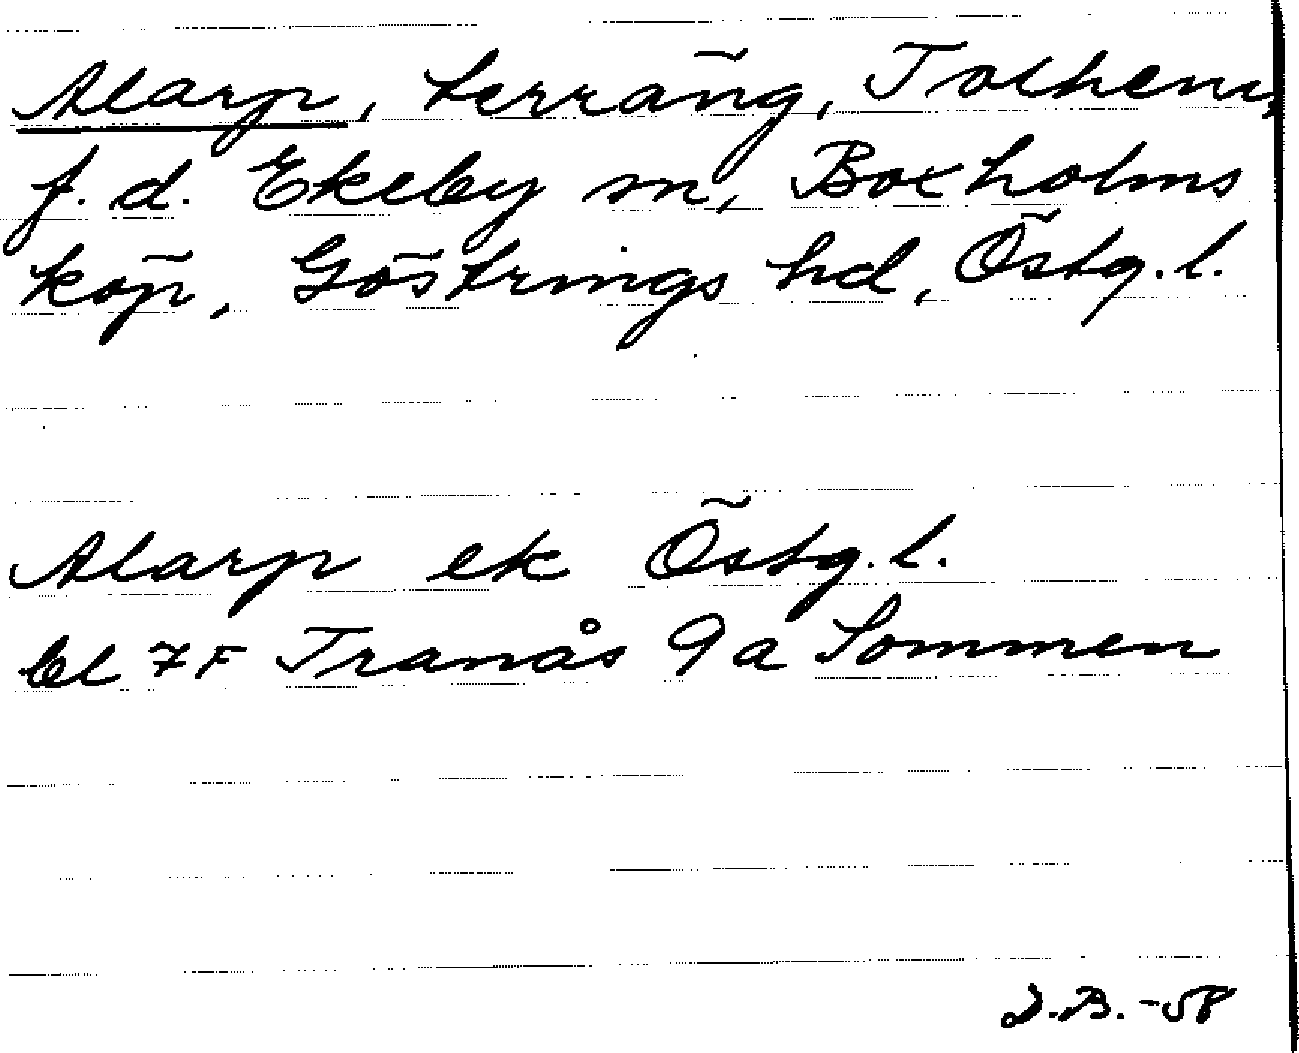 Alarp, terräng, Tolhem,
f.d. Ekeby sn, Boxholms
köp, Göstrings hd, Östg.l.
Alarp ek Östg.l.
bl 7F Tranås 9a Sommen
J.B. -58